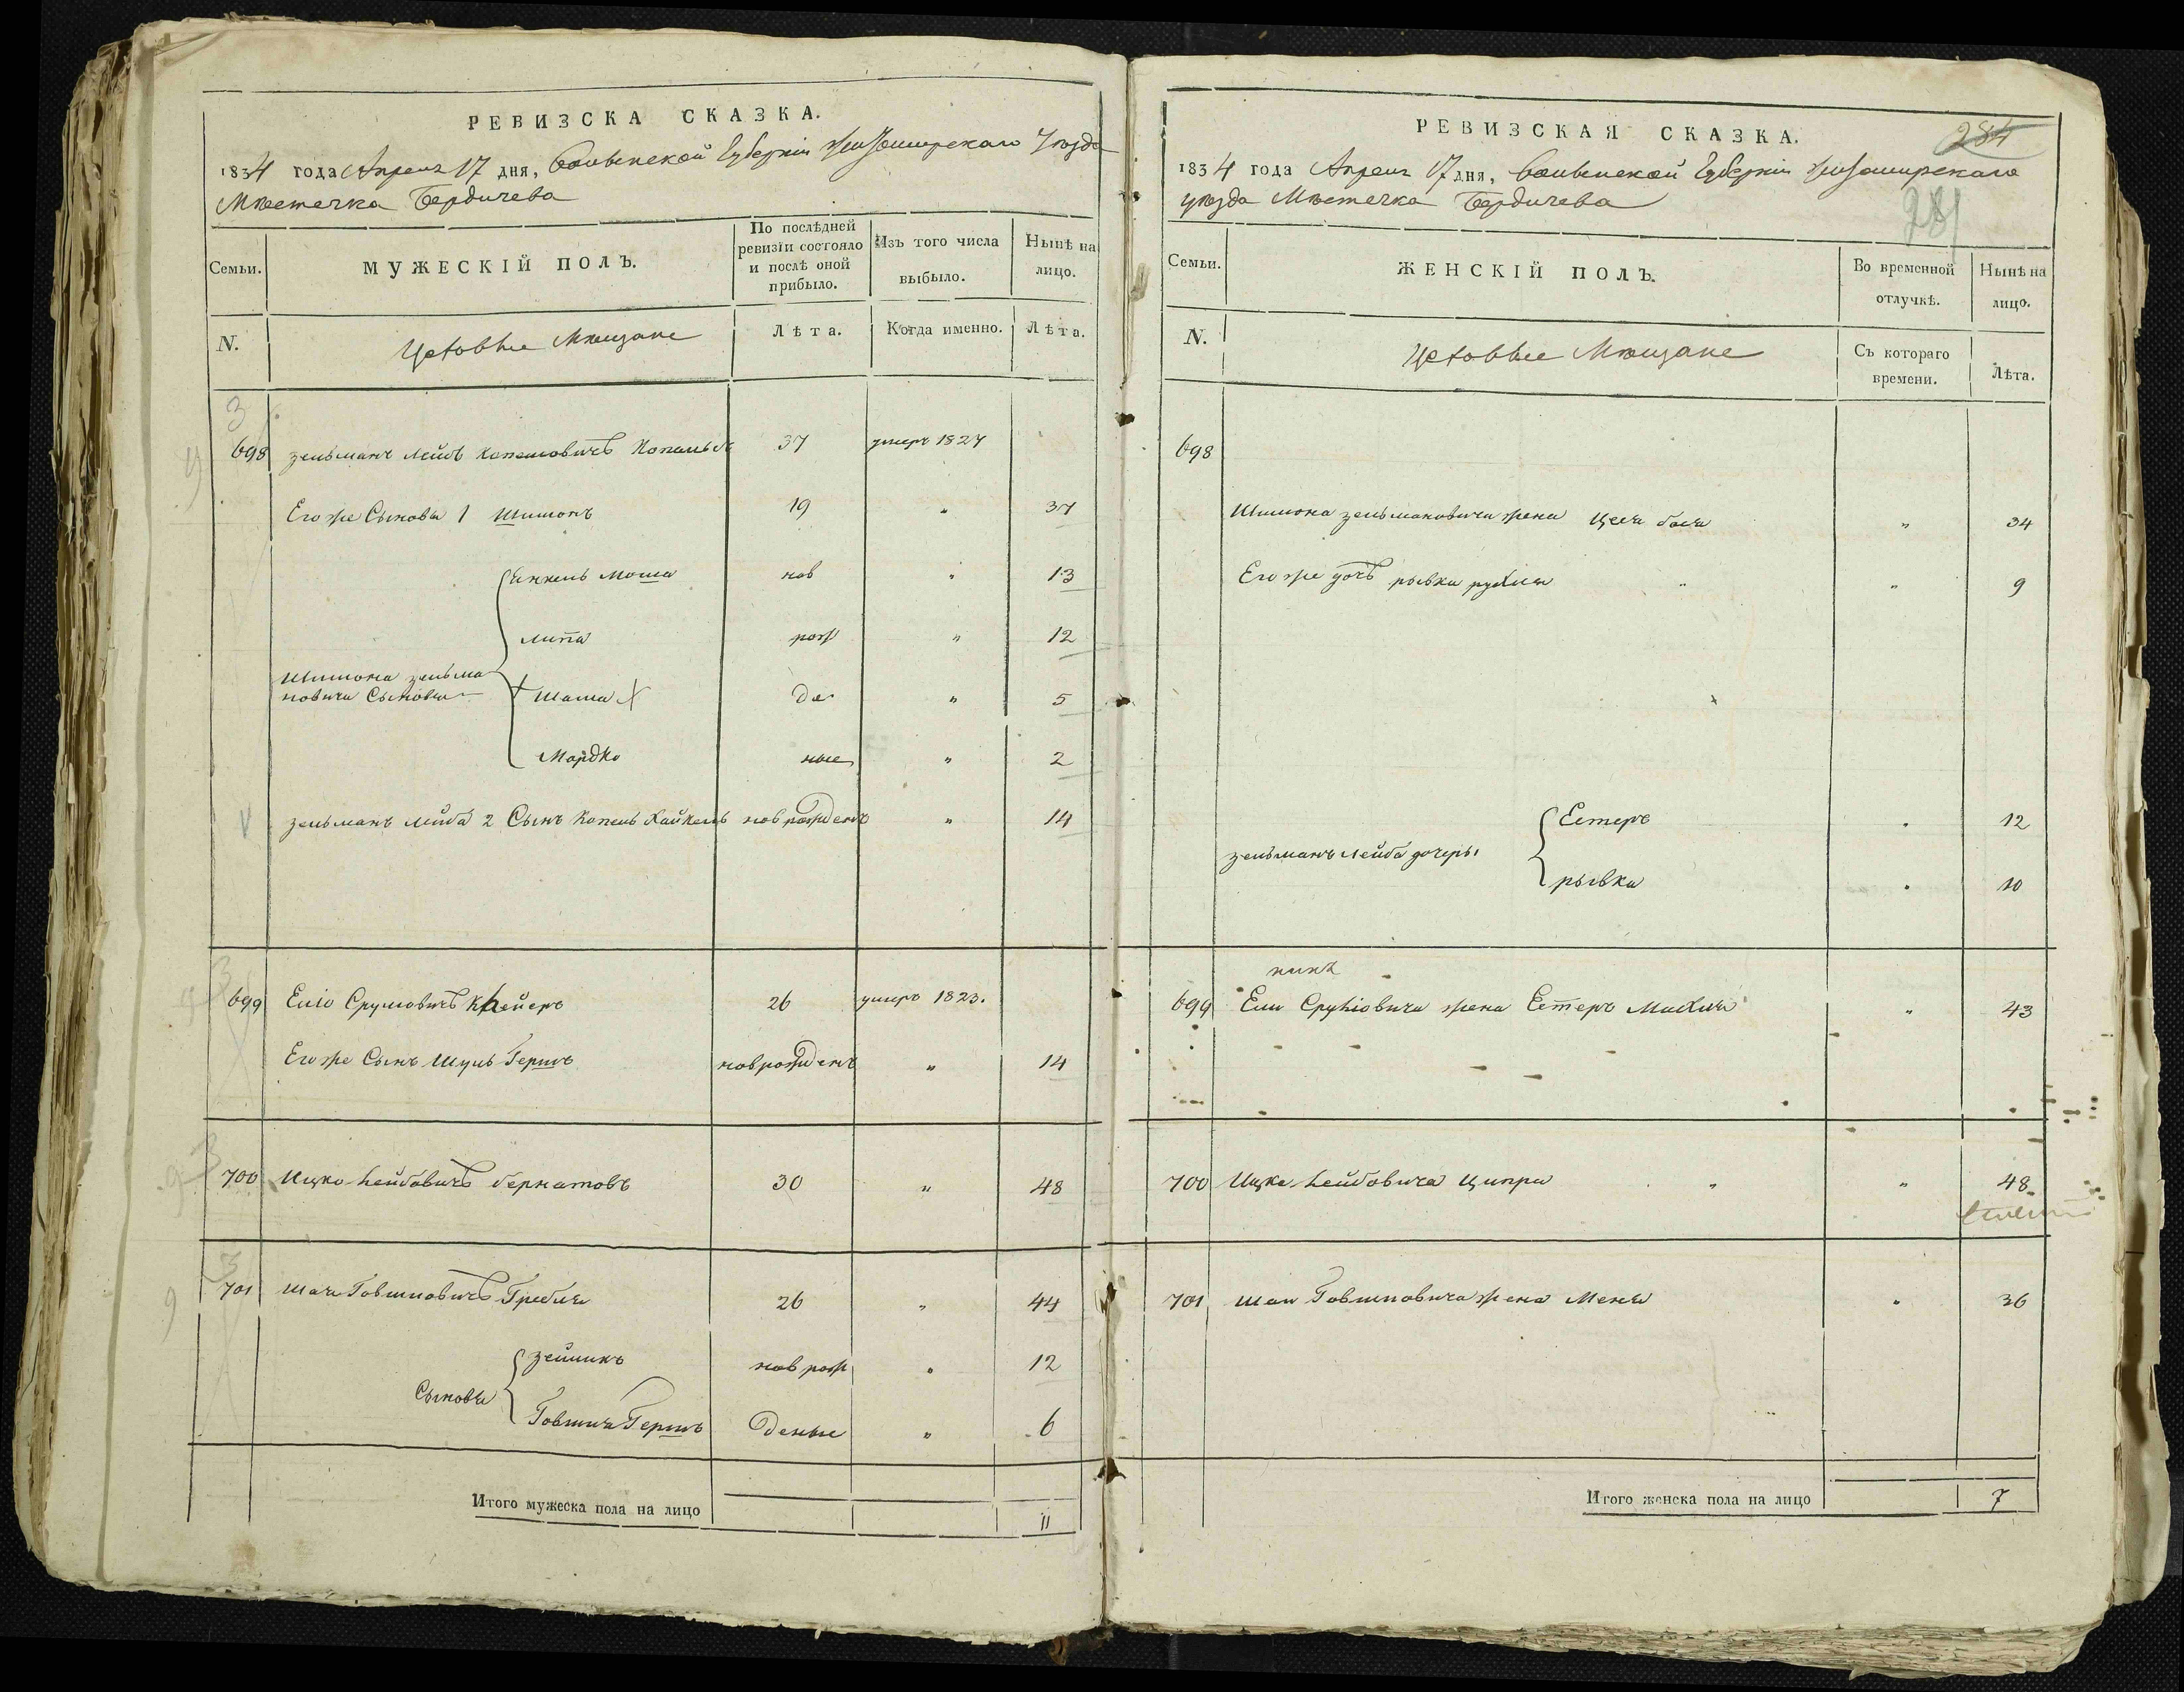 РЕВИЗСКА СКАЗКА.
1834 года Апреля 17 дня, Волынской Губернии Житомирскаго Уезда
Местечка Бердичева
Семьи.
МУЖЕСКІЙ ПОЛЪ.
По послѣдней ревизіи состояло и послѣ оной прибыло.
Изъ того числа выбыло.
Нынѣ на лицо.
N.
Мещане
Лѣта.
Когда именно.
Лѣта.
698 Зельманъ Лейбъ Копелювичъ 37 умеръ 1827
Его же Сыновья 1 Шимонъ 19 " 37
Янкель Моша нов " 13
Липа рож " 12
Шимона Зельма
новича Сыновья Шаша де " 5
Мордко ные " 2
Зельманъ Лейба 2 Сынъ Копель Хайкель новрожденъ " 14
699 Еліо Срулiовичъ 26 умеръ 1823.
Его же Сынъ Шуль Гершъ новрожденъ " 14
700 Ицко Лейбовичъ Бернатовъ 30 " 48
701 Шая Говшиовичъ Гребля 26 " 44
Сыновья
Зейликъ нов рож " 12
Говшия Гершъ деные " 6
Итого мужеска пола на лицо 11
РЕВИЗСКАЯ СКАЗКА.
284
281
1834 года Апреля 17 дня, Волынской Губернии Житомирскаго
уезда Местечка Бердичева
Семьи.
ЖЕНСКІЙ ПОЛЪ.
Во временной отлучкѣ.
Нынѣ на лицо.
N.
Мещане
Съ котораго времени.
Лѣта.
698
Шимона Зельмановича жена Цеся Бася " 34
Его же дочь Рывка Рухля " " 9
Естеръ " 12
Зельманъ Лейба дочеры
Рывка " 10
699 Ели Срулiовича жена Естеръ Малка " 43
700 Ицка Лейбовича Ципра " " 48
701 Шаи Говшиовича жена Меня " 36
Итого женска пола на лицо 7